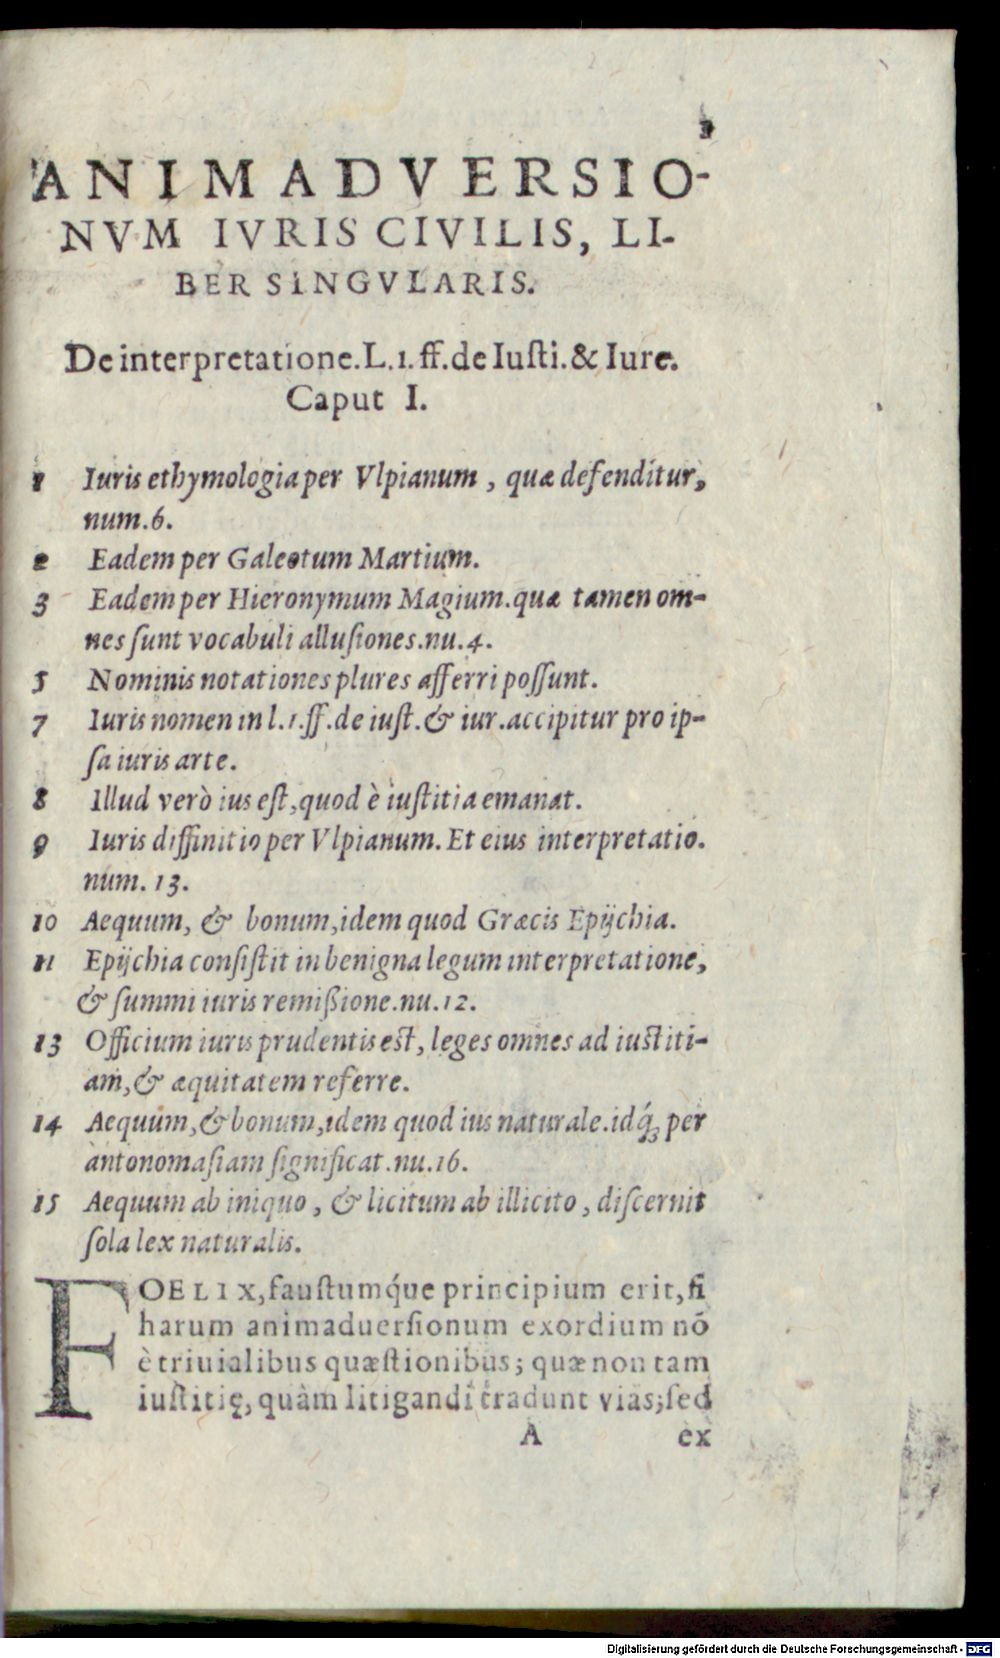 ANIMADVERSIO-
NVM IVRIS CIVILIS, LI-
BER SINGVLARIS.
De interpretatione.L.1.ff.de Iusti.& Iure.
Caput I.
1 Iuris ethymologia per Vlpianum, quæ defenditur,
num.6.
2 Eadem per Galeotum Martium.
3 Eadem per Hieronymum Magium.quæ tamen om-
nes sunt vocabuli allusiones.nu.4.
5 Nominis notationes plures afferri possunt.
7 Iuris nomen in l.1.ff.de iust.& iur.accipitur pro ip-
sa iuris arte.
8 Illud verò ius est,quod è iustitia emanat.
9 Iuris diffinitio per Vlpianum. Et eius interpretatio.
num. 13.
10 Aequum, & bonum,idem quod Græcis Epijchia.
11 Epijchia consistit in benigna legum interpretatione,
& summi iuris remißione.nu.12.
13 Officium iuris prudentis est, leges omnes ad iustiti-
am,& æquitatem referre.
14 Aequum,& bonum,idem quod ius naturale.idq́; per
antonomasiam significat.nu.16.
15 Aequum ab iniquo, & licitum ab illicito, discernit
sola lex naturalis.
FOELIX,faustumq́ue principium erit,si
harum animaduersionum exordium nõ
è triuialibus quæstionibus; quæ non tam
iustitię, quàm litigandi tradunt vias;sed
A ex
Digitalisierung gefördert durch die Deutsche Forschungsgemeinschaft - DFG